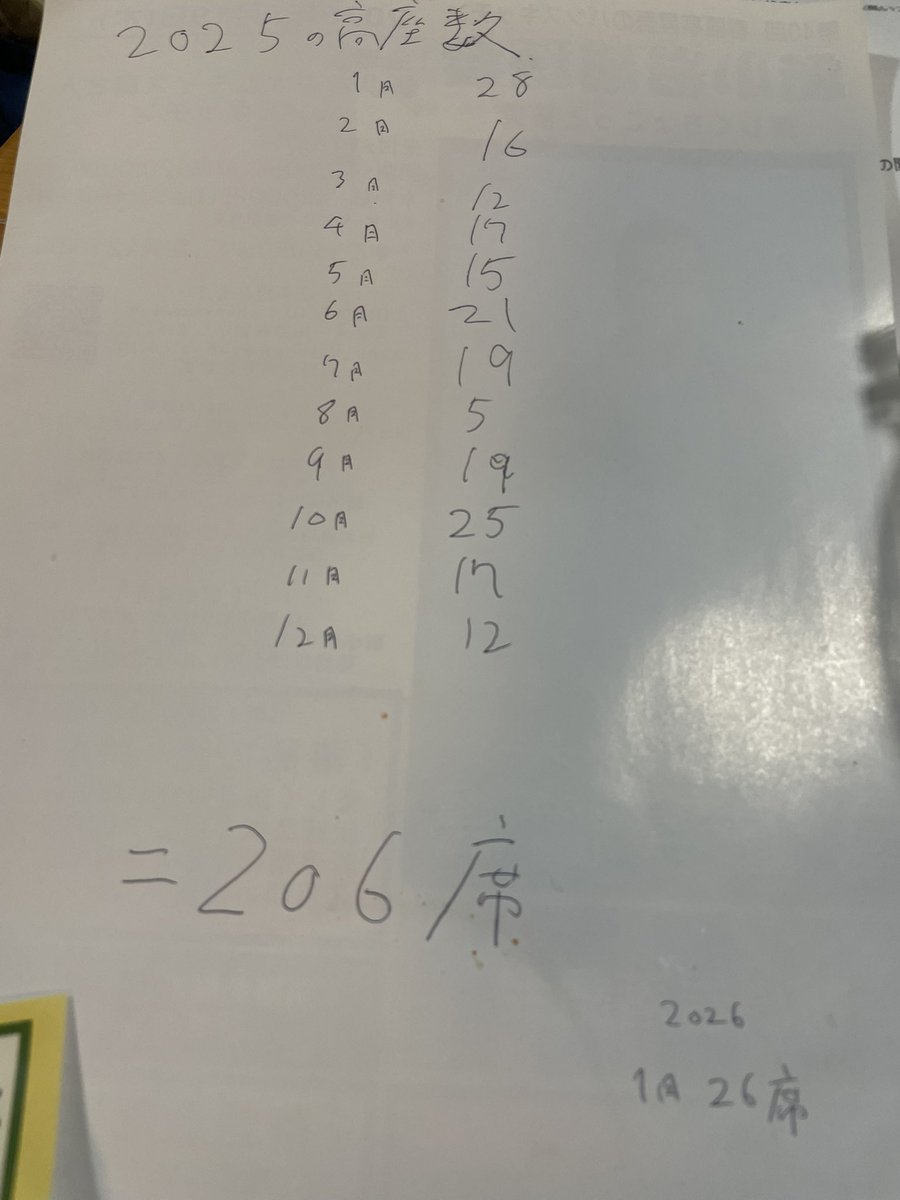 2025の高座数
1月 28
2月 16
3月 12
4月 17
5月 15
6月 21
7月 19
8月 5
9月 19
10月 25
11月 17
12月 12
=206席
2026
1月 26席